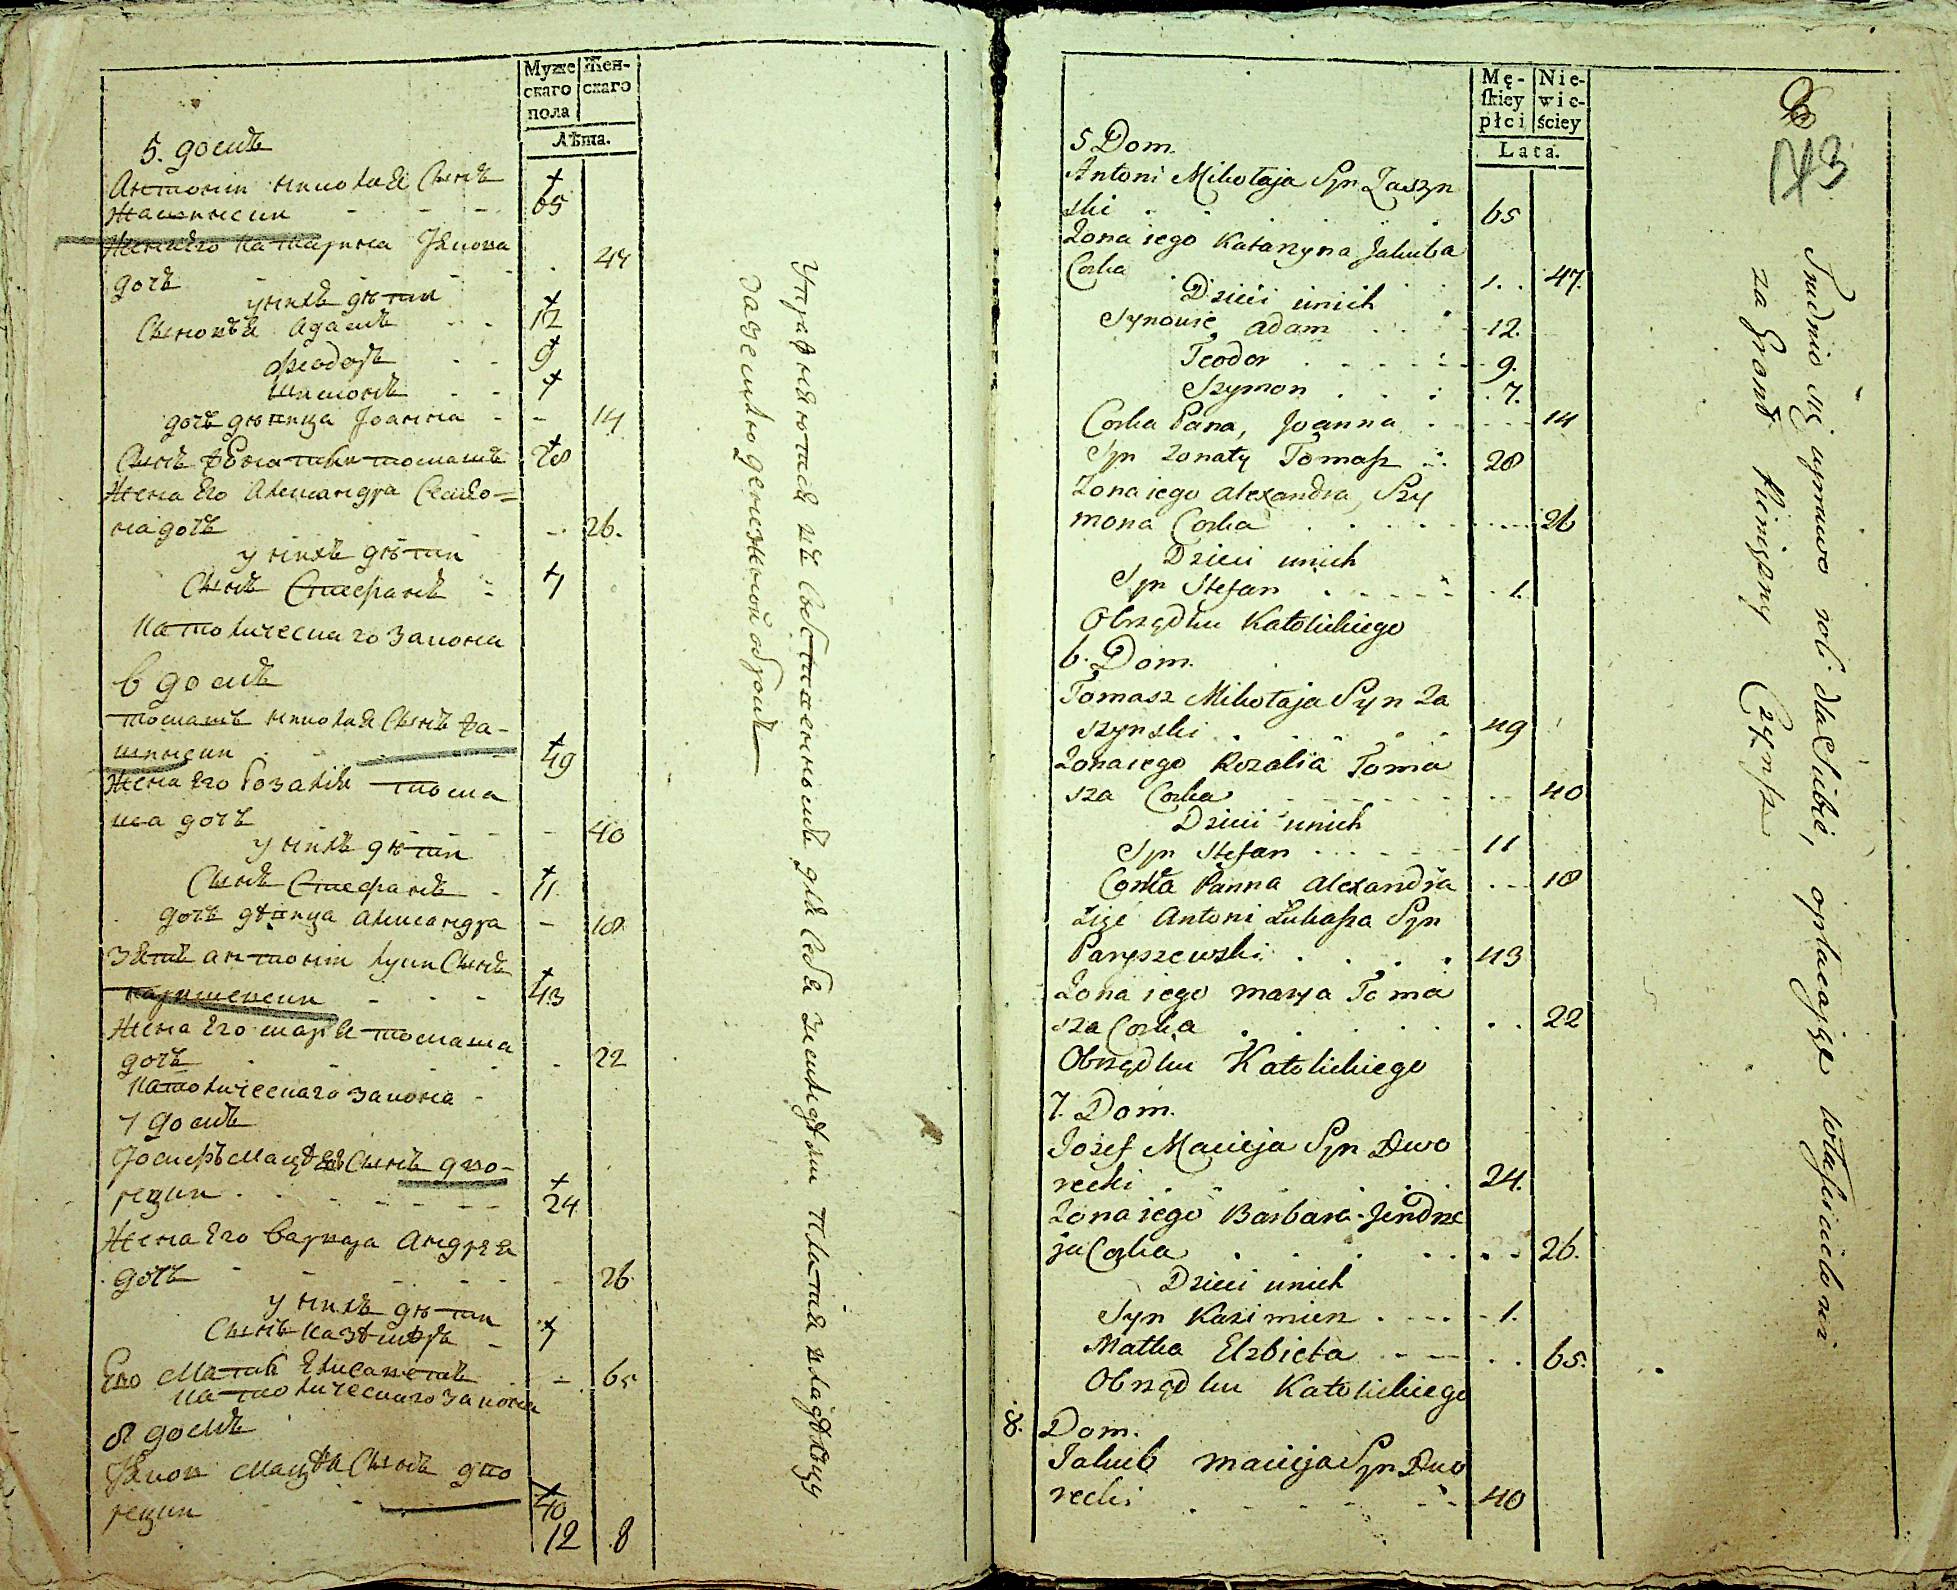 Муже
скаго
пола
Жен-
скаго
Лѣта.
5. домъ
Антоній Николая Сынъ
Жашински - - - 65
Жена Его Катарина Якова
дочь 47
у нихъ дѣти
Сыновья Адамъ - - 12
Феодоръ - - 9
Шимонъ - - 7
дочь дѣвица Іоанна - - 14
Сынъ Томашъ 28
Жена Его Александра Семио=
на дочь - 26.
у нихъ дѣти
Сынъ Стефанъ - 1
Католическаго Закона
6 домъ
Томашъ Николая Сынъ Жа-
шински 49
Жена Его Розалія Тома
ша дочь - 40
у нихъ дѣти
Сынъ Стефанъ - 11.
дочь дѣвица Александра - 18
Зять Антоній Луки Сынъ
Паришевски - - - 43
Жена Его Марья Томаша
дочь 22
Католическаго Закона -
7 домъ
Іосифъ Мацѣя Сынъ Дво-
рецки 24
Жена Его Барбара Андрея
дочь 26.
у нихъ дѣти
Сынъ Казѣмиръ - 1
Его Мати Елисаветъ - 65
Католическаго Закона
8 домъ
Яков Мацѣя Сынъ Дво
рецки 40
12 8
Упражняются въ для себя платя владѣльцу
за землю денежной оброкъ
Mę-
skiey
płci
Nie-
wie-
ściey
Lata.
5 Dom.
Antoni Mikołaja Syn Zaszyn
ski 65
Zona iego Katarzyna Jakuba
Corka 47.
Dzieci u nich
Synowie Adam 12.
Teodor 9.
Szymon 7.
Corka Pana, Joanna 14
Syn Zonaty Tomasz 28
Zona iego Alexandra, Szy
mona Corka 26
Dzieci u nich
Syn Stefan 1.
Obrządku Katolickiego
6. Dom.
Tomasz Mikołaja Syn Za
szynski 49
Zona iego Rozalia Toma
sza Corka 40
Dzieci u nich
Syn Stefan 11
Corka Panna Alexandra 18
Zięć Antoni Łukasza Syn
Paryszewski 43
Zona iego Marya Toma
sza Corka 22
Obrządku Katolickiego
7. Dom.
Jozef Macieja Syn Dwo
recki 24.
Zona iego Barbara Jendrze
ja Corka 26.
Dzieci u nich
Syn Kazimierz 1.
Matka Elzbieta 65.
Obrządku Katolickiego
8. Dom.
Jakub Macieja Syn Dwo
recki 40
Trudnio się uprawo roli dla Siebie, opłacając
za Gront Pieniężny Czynsz